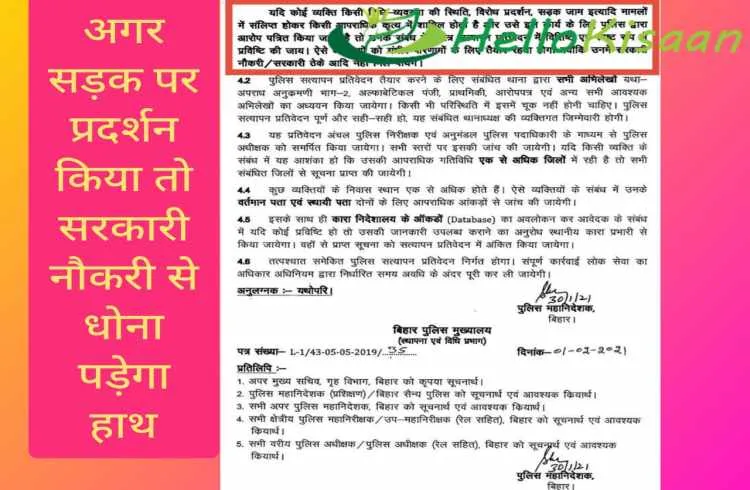 अगर
सड़क पर
प्रदर्शन
किया तो
सरकारी
नौकरी से
धोना
पड़ेगा
हाथ
यदि कोई व्यक्ति किसी विधि-व्यवस्था की स्थिति, विरोध प्रदर्शन, सड़क जाम इत्यादि मामलों
में संलिप्त होकर किसी आपराधिक कृत्य में शामिल होता है और उसे इस कार्य के लिए पुलिस द्वारा
आरोप पत्रित किया जाता है तो उनके संबंध
प्रविष्टि की जाय। ऐसे
नौकरी/सरकारी ठेके आदि नहीं मिल पायेंगे।
HelloKisaan
4.2 पुलिस सत्यापन प्रतिवेदन तैयार करने के लिए संबंधित थाना द्वारा सभी अभिलेखों यथा–
अपराध अनुक्रमणी भाग–2, अल्फाबेटिकल पंजी, प्राथमिकी, आरोपपत्र एवं अन्य सभी आवश्यक
अभिलेखों का अध्ययन किया जायेगा। किसी भी परिस्थिति में इसमें चूक नहीं होनी चाहिए। पुलिस
सत्यापन प्रतिवेदन पूर्ण और सही–सही हो, यह संबंधित थानाध्यक्ष की व्यक्तिगत जिम्मेवारी होगी।
4.3 यह प्रतिवेदन अंचल पुलिस निरीक्षक एवं अनुमंडल पुलिस पदाधिकारी के माध्यम से पुलिस
अधीक्षक को समर्पित किया जायेगा। सभी स्तरों पर इसकी जांच की जायेगी। यदि किसी व्यक्ति के
संबंध में यह आशंका हो कि उसकी आपराधिक गतिविधि एक से अधिक जिलों में रही है तो सभी
संबंधित जिलों से सूचना प्राप्त की जायेगी।
4.4 कुछ व्यक्तियों के निवास स्थान एक से अधिक होते हैं। ऐसे व्यक्तियों के संबंध में उनके
वर्तमान पता एवं स्थायी पता दोनों के लिए आपराधिक आंकड़ों से जांच की जायेगी।
4.5 इसके साथ ही कारा निदेशालय के आँकडों (Database) का अवलोकन कर आवेदक के संबंध
में यदि कोई प्रविष्टि हो तो उसकी जानकारी उपलब्ध कराने का अनुरोध स्थानीय कारा प्रभारी से
किया जायेगा। वहाँ से प्राप्त सूचना को सत्यापन प्रतिवेदन में अंकित किया जायेगा।
4.6 तत्पश्चात समेकित पुलिस सत्यापन प्रतिवेदन निर्गत होगा। संपूर्ण कार्रवाई लोक सेवा का
अधिकार अधिनियम द्वारा निर्धारित समय अवधि के अंदर पूरी कर ली जायेगी।
अनुलग्नक :– यथोपरि।
30/1/21
पुलिस महानिदेशक,
बिहार।
बिहार पुलिस मुख्यालय
(स्थापना एवं विधि प्रभाग)
पत्र संख्या– L-1/43-05-05-2019/...35......
दिनांक–01-02-2021
प्रतिलिपि :–
1. अपर मुख्य सचिव, गृह विभाग, बिहार को कृपया सूचनार्थ।
2. पुलिस महानिदेशक (प्रशिक्षण)/बिहार सैन्य पुलिस को सूचनार्थ एवं आवश्यक क्रियार्थ।
3. सभी अपर पुलिस महानिदेशक, बिहार को सूचनार्थ एवं आवश्यक कियार्थ।
4. सभी क्षेत्रीय पुलिस महानिरीक्षक/उप–महानिरीक्षक (रेल सहित), बिहार को सूचनार्थ एवं आवश्यक
कियार्थ।
5. सभी वरीय पुलिस अधीक्षक/पुलिस अधीक्षक (रेल सहित), बिहार को सूचनार्थ एवं आवश्यक
कियार्थ।
30/1/21
पुलिस महानिदेशक,
बिहार।